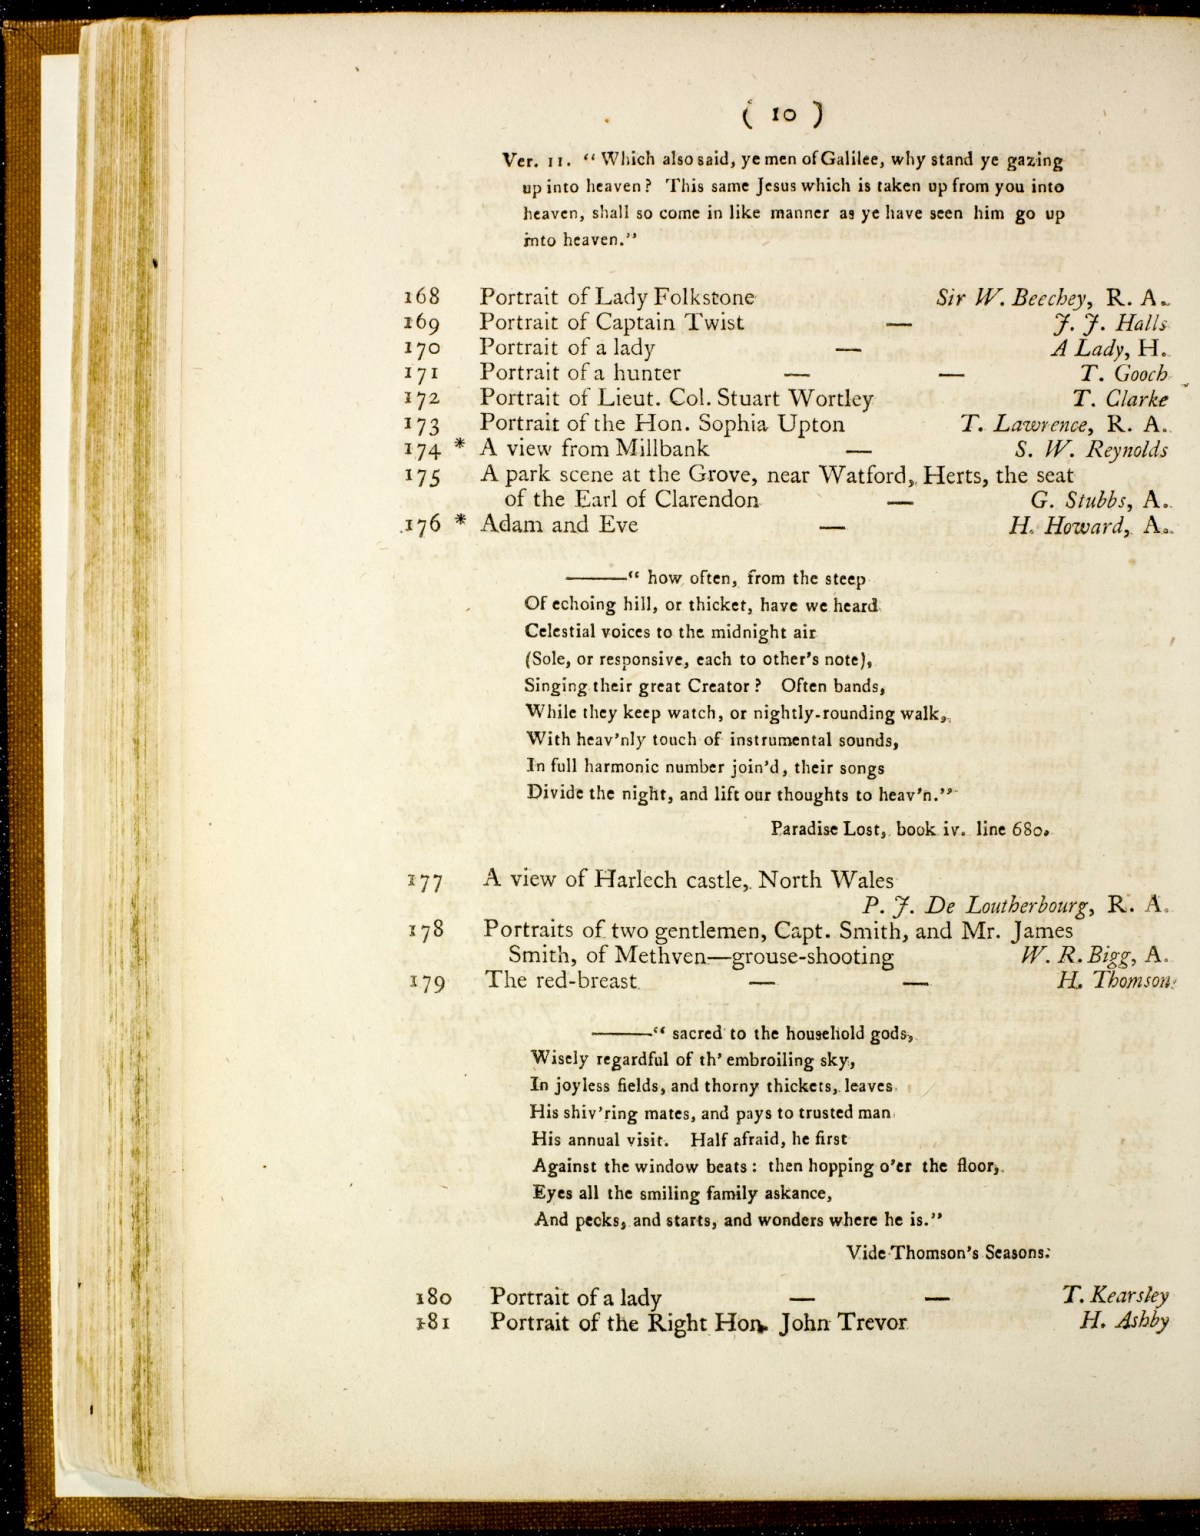 ( 10 )
Ver. 11. “ Which also said, ye men of Galilee, why stand ye gazing
up into heaven? This same Jesus which is taken up from you into
heaven, shall so come in like manner as ye have seen him go up
into heaven.”
168 Portrait of Lady Folkstone Sir W. Beechey, R. A.
169 Portrait of Captain Twist — J. J. Halls
170 Portrait of a lady — A Lady, H.
171 Portrait of a hunter — — T. Gooch
172 Portrait of Lieut. Col. Stuart Wortley T. Clarke
173 Portrait of the Hon. Sophia Upton T. Lawrence, R. A.
174 * A view from Millbank — S. W. Reynolds
175 A park scene at the Grove, near Watford, Herts, the seat
of the Earl of Clarendon — G. Stubbs, A.
176 * Adam and Eve — H. Howard, A.
———“ how often, from the steep
Of echoing hill, or thicket, have we heard
Celestial voices to the midnight air
(Sole, or responsive, each to other's note),
Singing their great Creator? Often bands,
While they keep watch, or nightly-rounding walk,
With heav'nly touch of instrumental sounds,
In full harmonic number join'd, their songs
Divide the night, and lift our thoughts to heav'n.”
Paradise Lost, book iv. line 680.
177 A view of Harlech castle, North Wales
P. J. De Loutherbourg, R. A.
178 Portraits of two gentlemen, Capt. Smith, and Mr. James
Smith, of Methven—grouse-shooting W. R. Bigg, A.
179 The red-breast — — H. Thomson
———“ sacred to the household gods,
Wisely regardful of th' embroiling sky,
In joyless fields, and thorny thickets, leaves
His shiv'ring mates, and pays to trusted man
His annual visit. Half afraid, he first
Against the window beats: then hopping o'er the floor,
Eyes all the smiling family askance,
And pecks, and starts, and wonders where he is.”
Vide Thomson's Seasons.
180 Portrait of a lady — — T. Kearsley
181 Portrait of the Right Hon. John Trevor H. Ashby